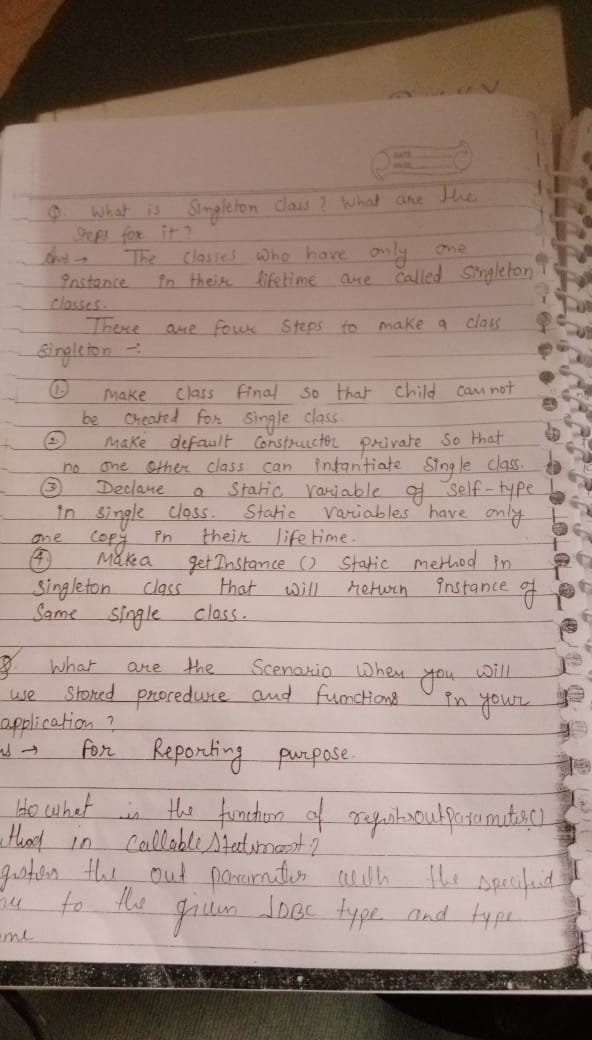 DATE
PAGE
Q. What is Singleton class? What are the
steps for it?
Ans → The classes who have only one
instance in their lifetime are called singleton
classes.
There are four steps to make a class
singleton -:
① Make class final so that child cannot
be created for single class.
② Make default constructor private so that
no one other class can intantiate single class.
③ Declare a static variable of self-type
in single class. Static variables have only
one copy in their lifetime.
④ Make a getInstance () static method in
singleton class that will return instance of
same single class.
Q. What are the Scenario When you will
use stored procedure and functions in your
application?
→ For Reporting purpose.
what is the function of
thod in CallableStatement?
the out parameter with the specified
to the given JDBC type and type
me